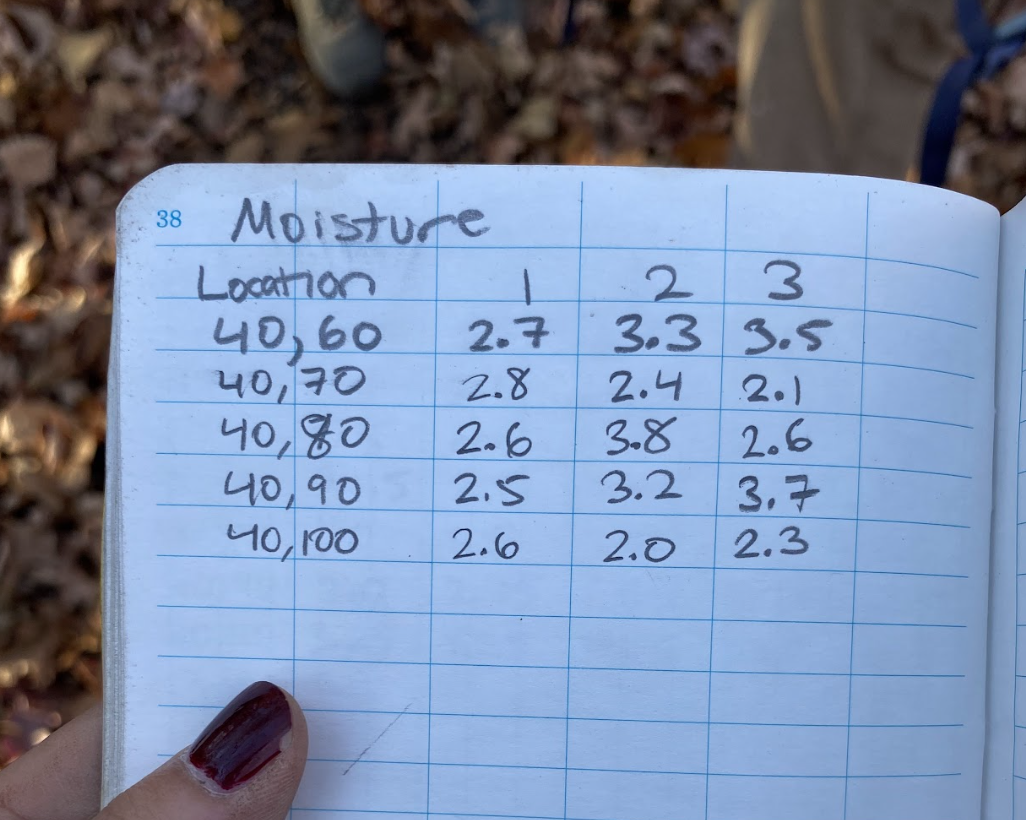 38 Moisture
Location 1 2 3
40,60 2.7 3.3 3.5
40,70 2.8 2.4 2.1
40,80 2.6 3.8 2.6
40,90 2.5 3.2 3.7
40,100 2.6 2.0 2.3